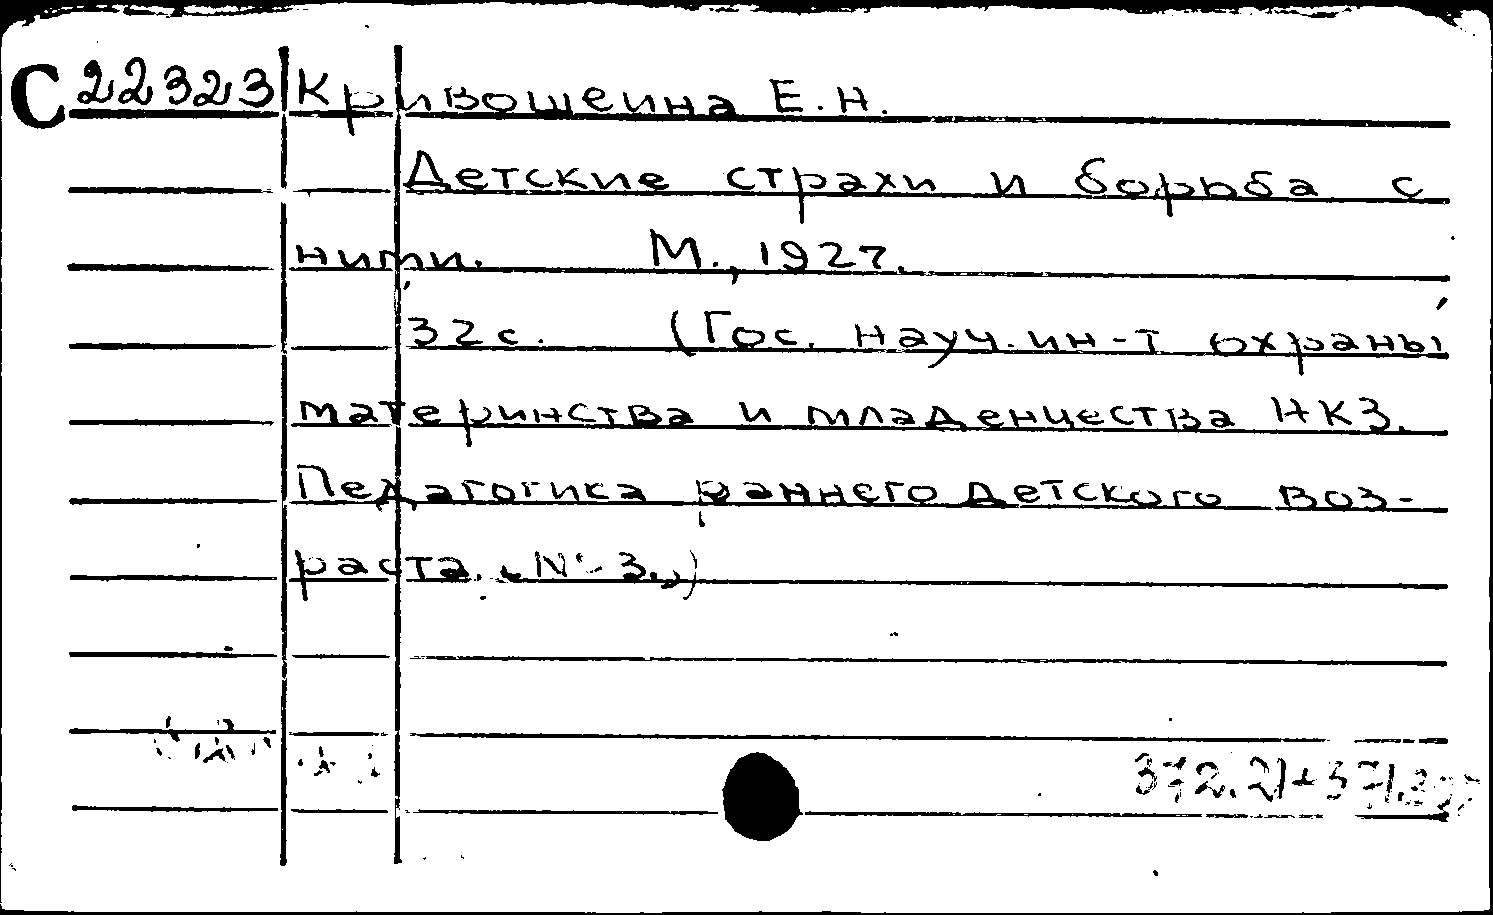 С 22323 Кривошеина Е.Н.
Детские страхи и борьба с
ними. М., 1927.
32 с. (Гос. науч. ин-т охраны
материнства и младенчества НКЗ.
Педагогика раннего детского воз-
раста. № 3.)
372.21+371.